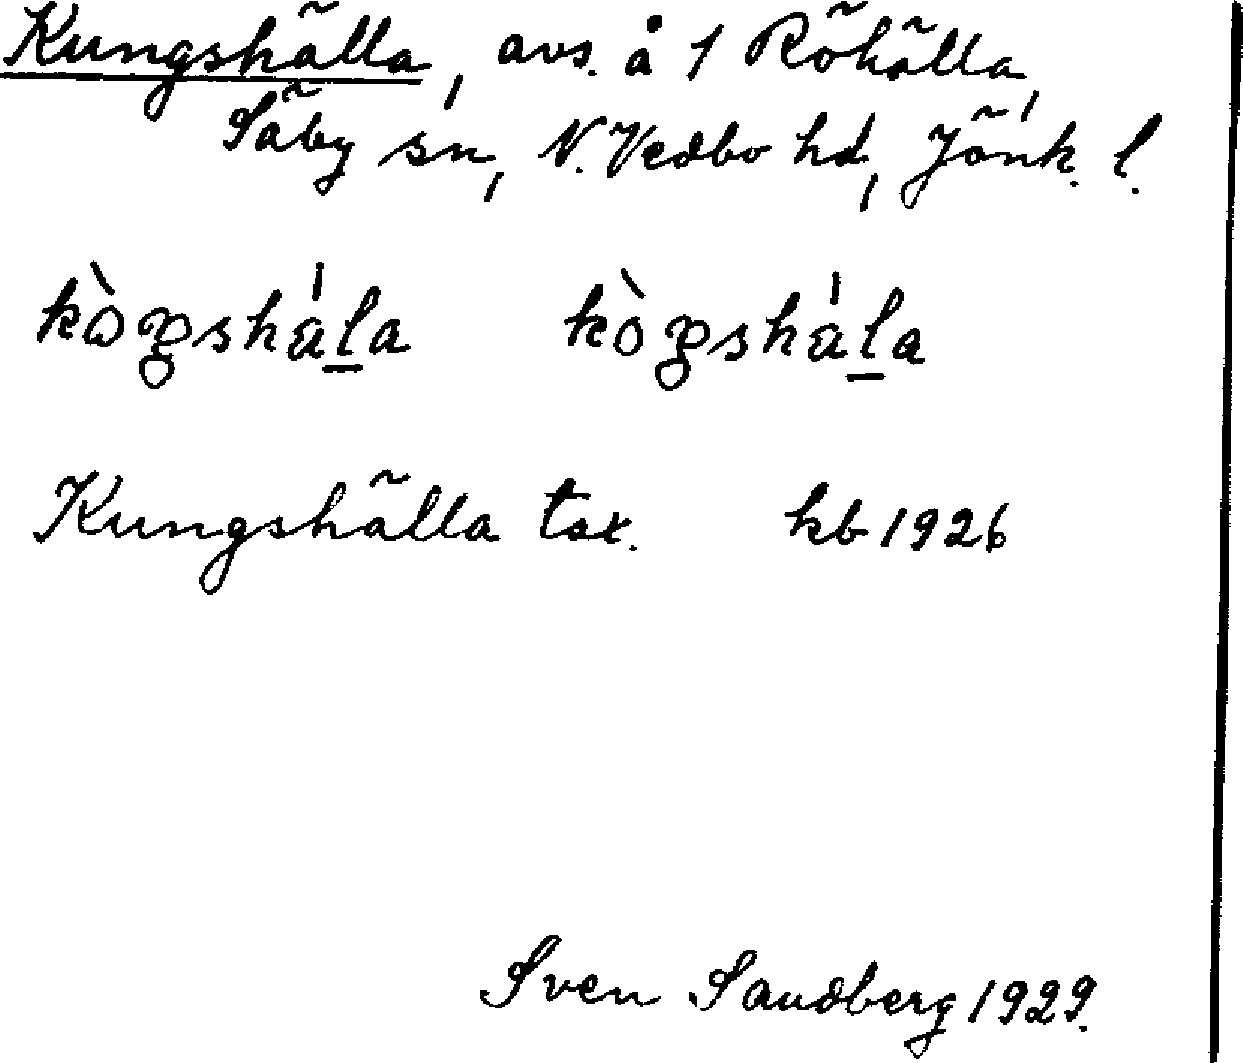 Kungshälla, avs. å 1 Röhälla,
Säby sn, N. Vedbo hd, Jönk. l.
kòŋshála kòŋshála
Kungshälla tsx. kb 1926
Sven Sandberg 1929.